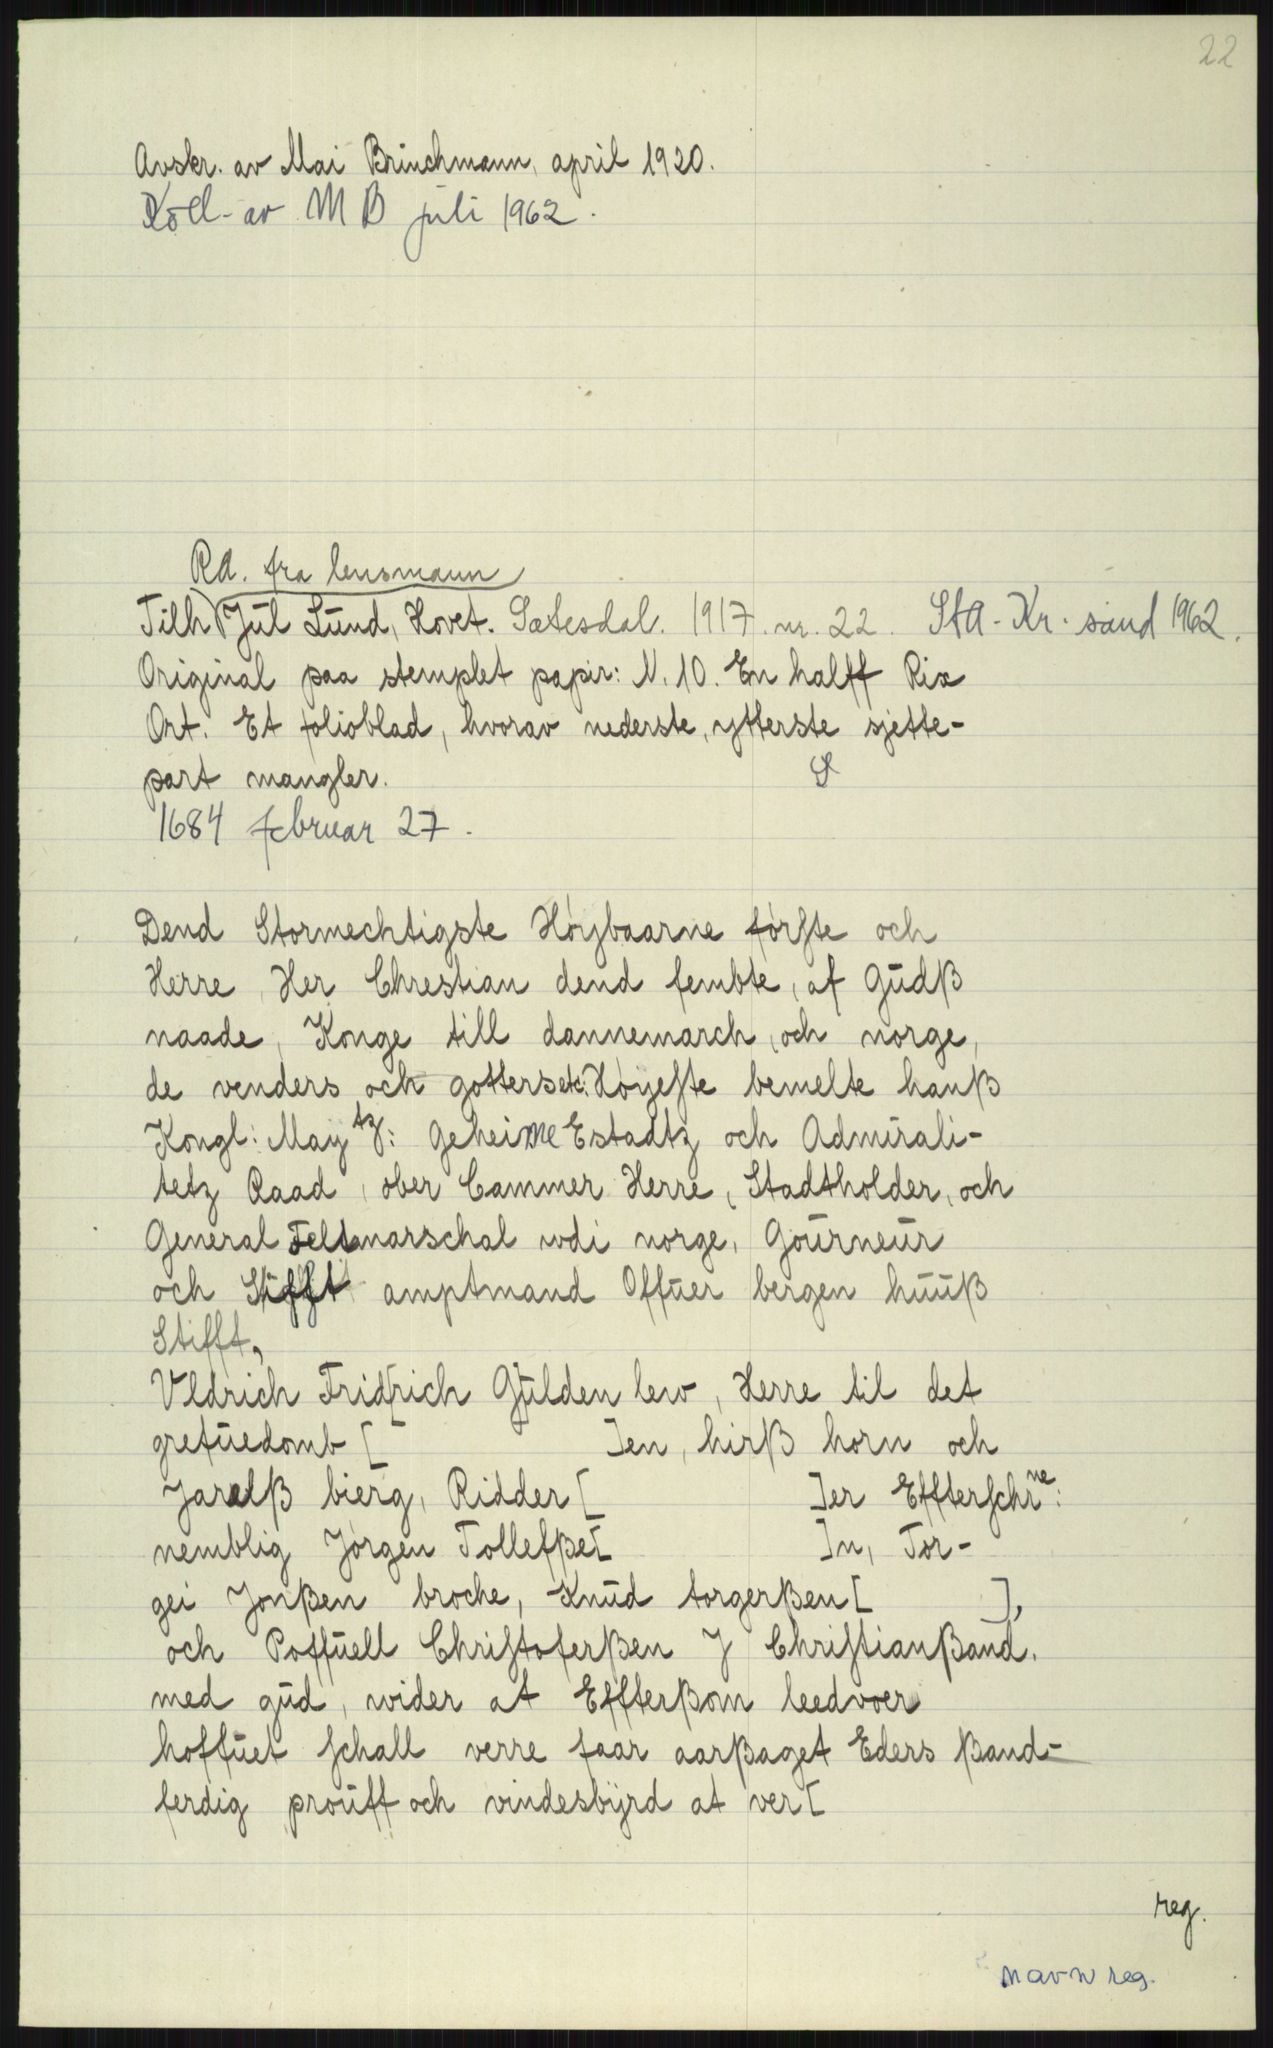 22
Avskr. av Mai Brinchmann, april 1920.
Koll. av M B juli 1962.
RA. fra lensmann
Tilh Jul Lund, Hovet. Sætesdal. 1917. nr. 22. StA - Kr. sand 1962.
Original paa stemplet papir: N. 10. En halff Rix
Ort. Et folioblad, hvorav nederste, ytterste sjette-
part mangler.
1684 februar 27.
Dend Stormechtigste Høÿbaarne førſte och
Herre, Her Chrestian dend fembte, af Gudß
naade, Konge till dannemarch, och norge,
de venders och gotters etc: Høyeſte bemelte hanß
Kongl: Maytz: Geheime Estadtz och Admirali-
tetz Raad, ober Cammer Herre, Stadtholder, och
General Feltmarschal udi norge, Gourneur
och Stifft amptmand Offuer bergen huuß
Stifft,
Vldrich Fridrich Gülden lew, Herre til det
grefuedomb [ ]en, hirß horn och
Jaralß bierg, Ridder [ ]er Effterſchrne:
nemblig Jørgen Tollefße[ ]n, Tor-
gei Jonßen broche, Knud torgerßen [ ],
och Poffuell Chriſtoferßen J Chriſtianßand.
med gud, wider at Effterßom leedvoer
hoffuet ſchall verre faar aarßaget Eders ßand-
ferdig prouff och vindesbÿrd at ver[
reg.
navn reg.